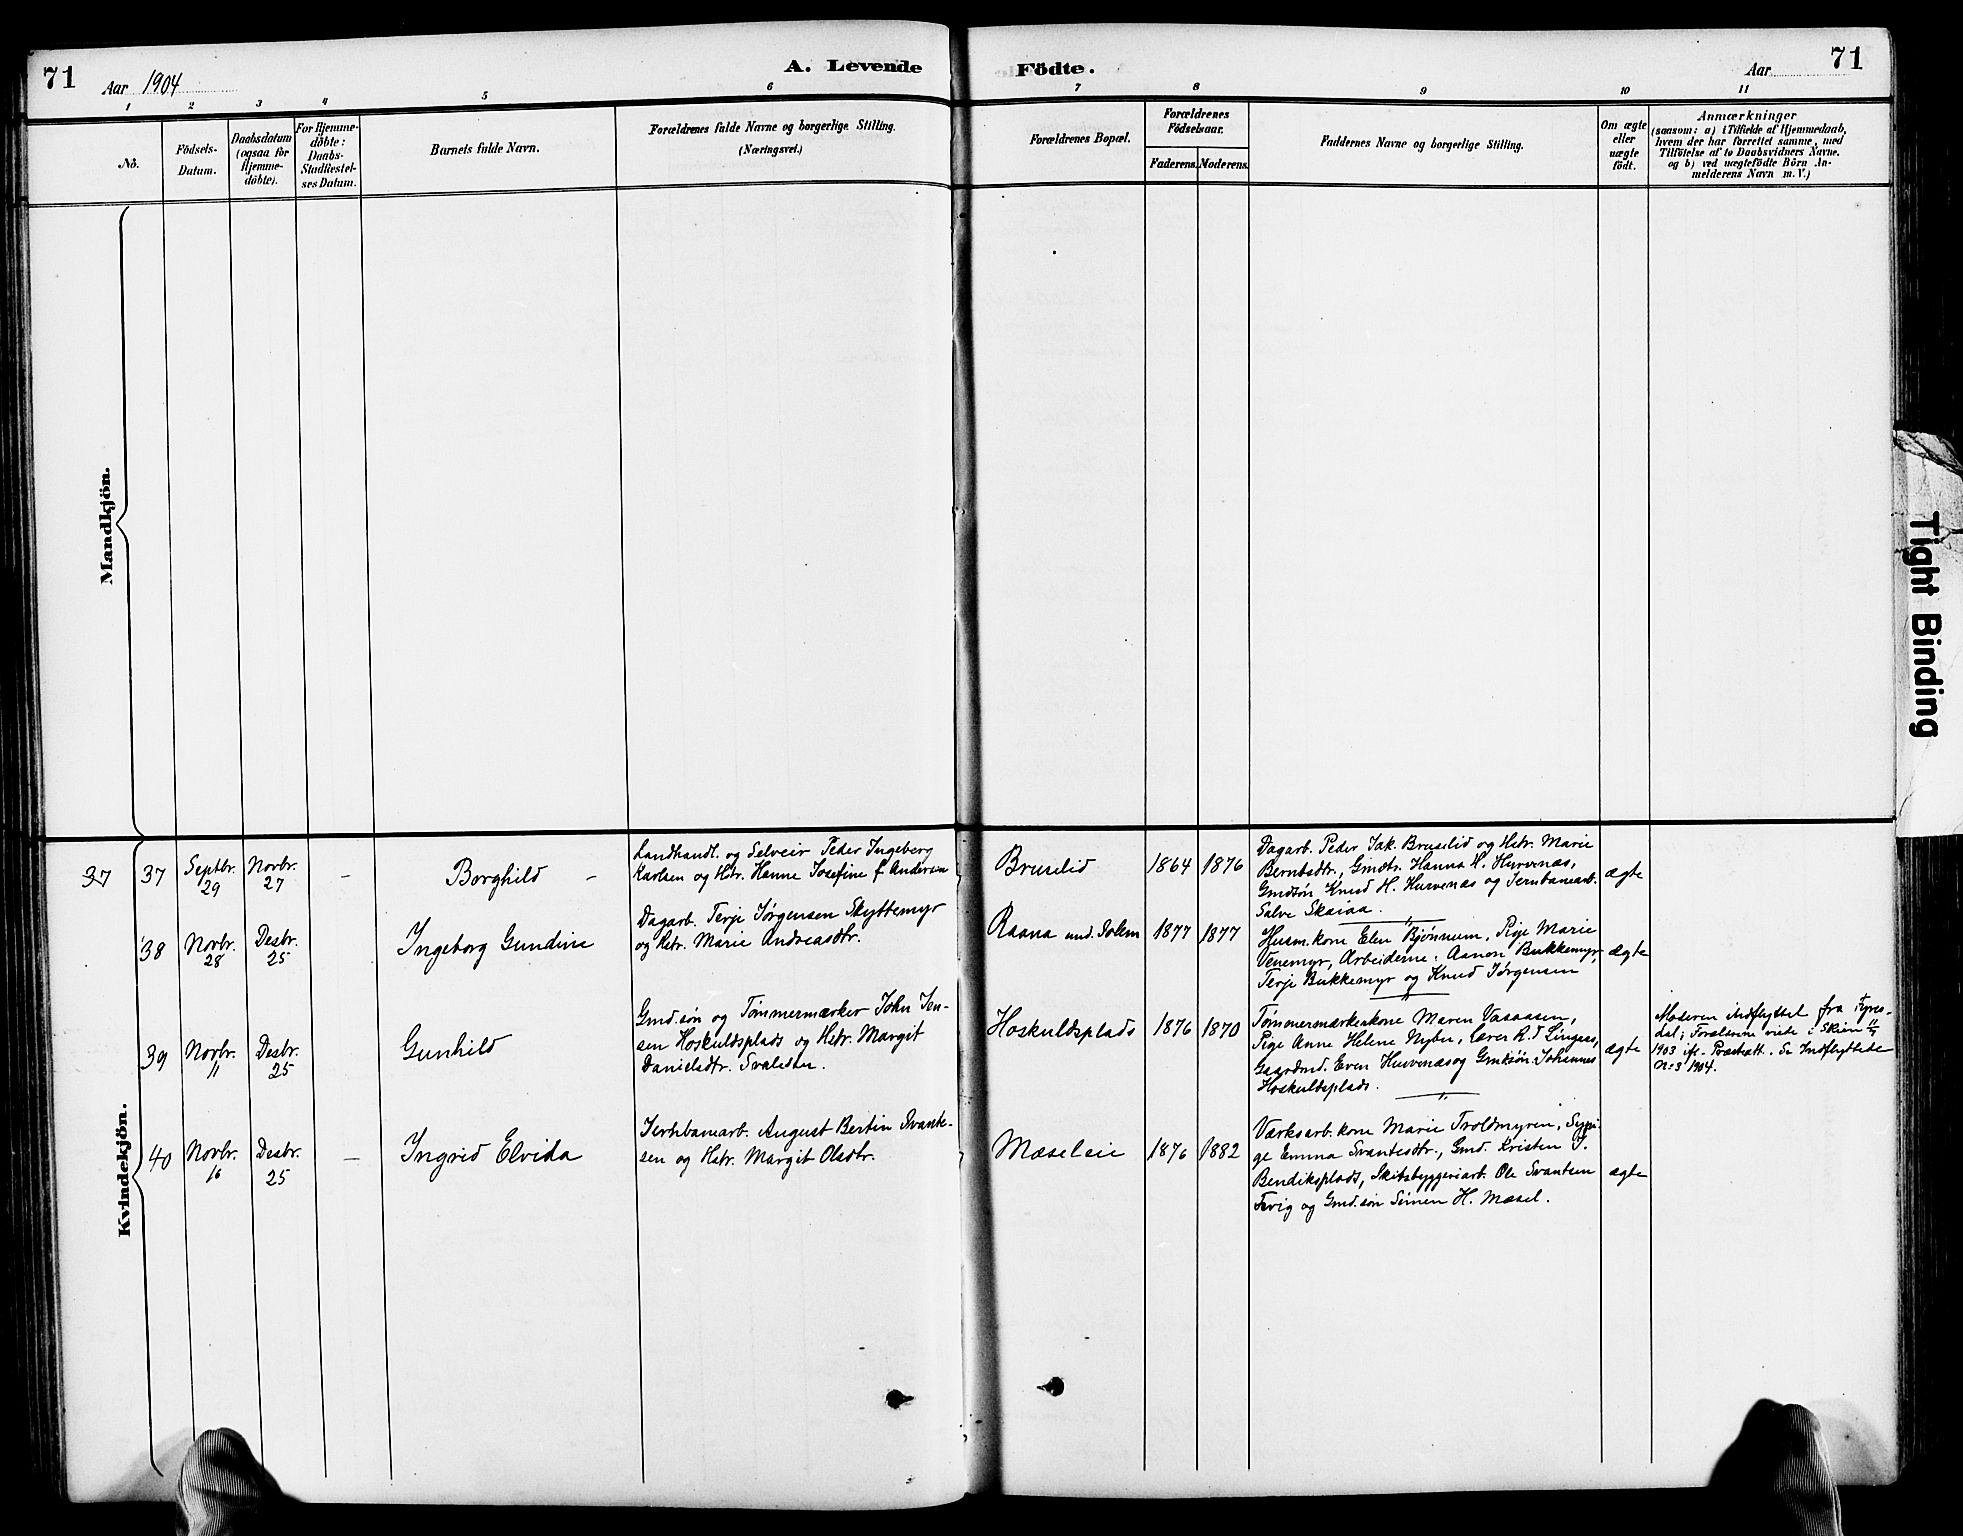 71
Aar 1904
A. Levende
Födte.
Aar
71
1 2 3 4 5 6 7 8 9 10 11
No.
Födsels-
Datum.
Daabsdatum
(ogsaa for
Hjemme-
döbte).
For Hjemme-
döbte:
Daabs-
Stadfæstel-
ses Datum.
Barnets fulde Navn.
Forældrenes fulde Navne og borgerlige Stilling.
(Næringsvei.)
Forældrenes Bopæl.
Forældrenes
Födselsaar.
Faderens. Moderens.
Faddernes Navne og borgerlige Stilling.
Om ægte
eller
uægte
födt.
Anmærkninger
(saasom: a) i Tilfælde af Hjemmedaab,
hvem der har forrettet samme, med
Tilföielse af to Daabsvidners Navne.
og b) ved uægtefödte Börn An-
melderens Navn m. V.)
Mandkjön.
Kvindekjön.
37
37
Septbr.
29
Novbr.
27
-
Borghild -
Landhandl. og Selveier Peder Ingeberg
Karlsen og Hstr. Hanne Josefine f. Andersen
Bruselid
1864
1876
Dagarb. Peder Jak. Bruselid og Hstr. Marie
Berntsdtr., Gmdtr. Hanna H. Hurvenæs,
Gmdsön Knud H. Hurvenæs og Jernbanearb.
Salve Skaiaa.
ægte
38
Novbr.
28
Desbr.
25
Ingeborg Gundine
Dagarb. Terje Jørgensen Skyttemyr
og Hstr. Marie Andreasdtr.
Raana und. Solem
1877
1877
Husm.kone Elen Bjönnum, Pige Marie
Venemyr, Arbeiderne: Aanon Bukkemyr,
Terje Bukkemyr og Knud Jørgensen
ægte
39
Novbr.
11
Desbr.
25
Gunhild
Gmd.søn og Tømmermærker John Jen-
sen Hoskuldsplads og Hstr. Margit
Danielsdtr.
Hoskuldsplads
1876
1870
Tømmermærkerkone Maren Vasassen,
Pige Anne Helene Nybu, Lærer R. T. Lingers,
Gaardmd. Even Hurvenæs og Gmdsön Johannes
Hoskuldsplads.
ægte
Moderen indflyttet fra Fyres-
dal; Forældrene viede i Skien
1903 ifl. Præsteatt. Se Indflyttede
No 3 1904.
40
Novbr.
16
Desbr.
25
-
Ingrid Elvida
Jernbanearb. August Bertin Svante-
sen og Hstr. Margit Olsdtr.
Mæseleie
1876
1882
Værksarb.kone Marie Troldmyren, Sypi-
ge Emma Svantesdtr., Gmd. Kristen J.
Bendiksplads, Skibsbyggeriarb. Ole Svantsen
Fevig og Gmd.søn Simen H. Mæsel.
ægte
Tight Binding